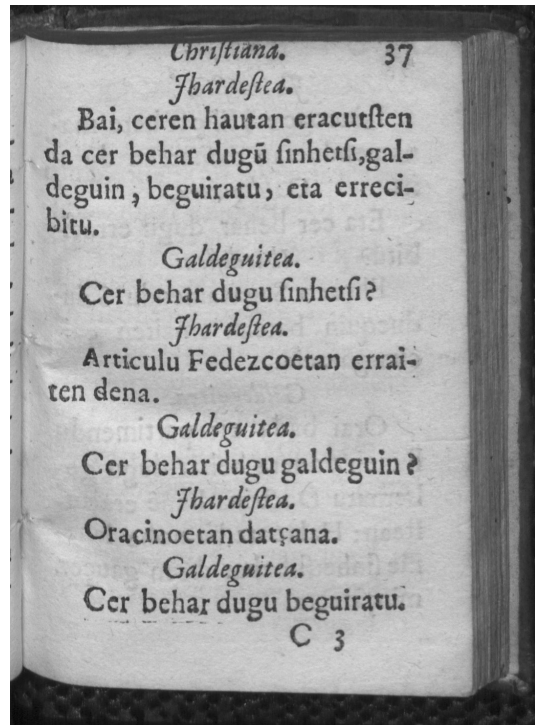 Chriſtiana. 37
Jhardeſtea.
Bai, ceren hautan eracutſten
da cer behar dugũ ſinhetſi,gal-
deguin, beguiratu, eta erreci-
bitu.
Galdeguitea.
Cer behar dugu ſinhetſi?
Jhardeſtea.
Articulu Fedezcoetan errai-
ten dena.
Galdeguitea.
Cer behar dugu galdeguin?
Jhardeſtea.
Oracinoetan datçana.
Galdeguitea.
Cer behar dugu beguiratu.
C 3